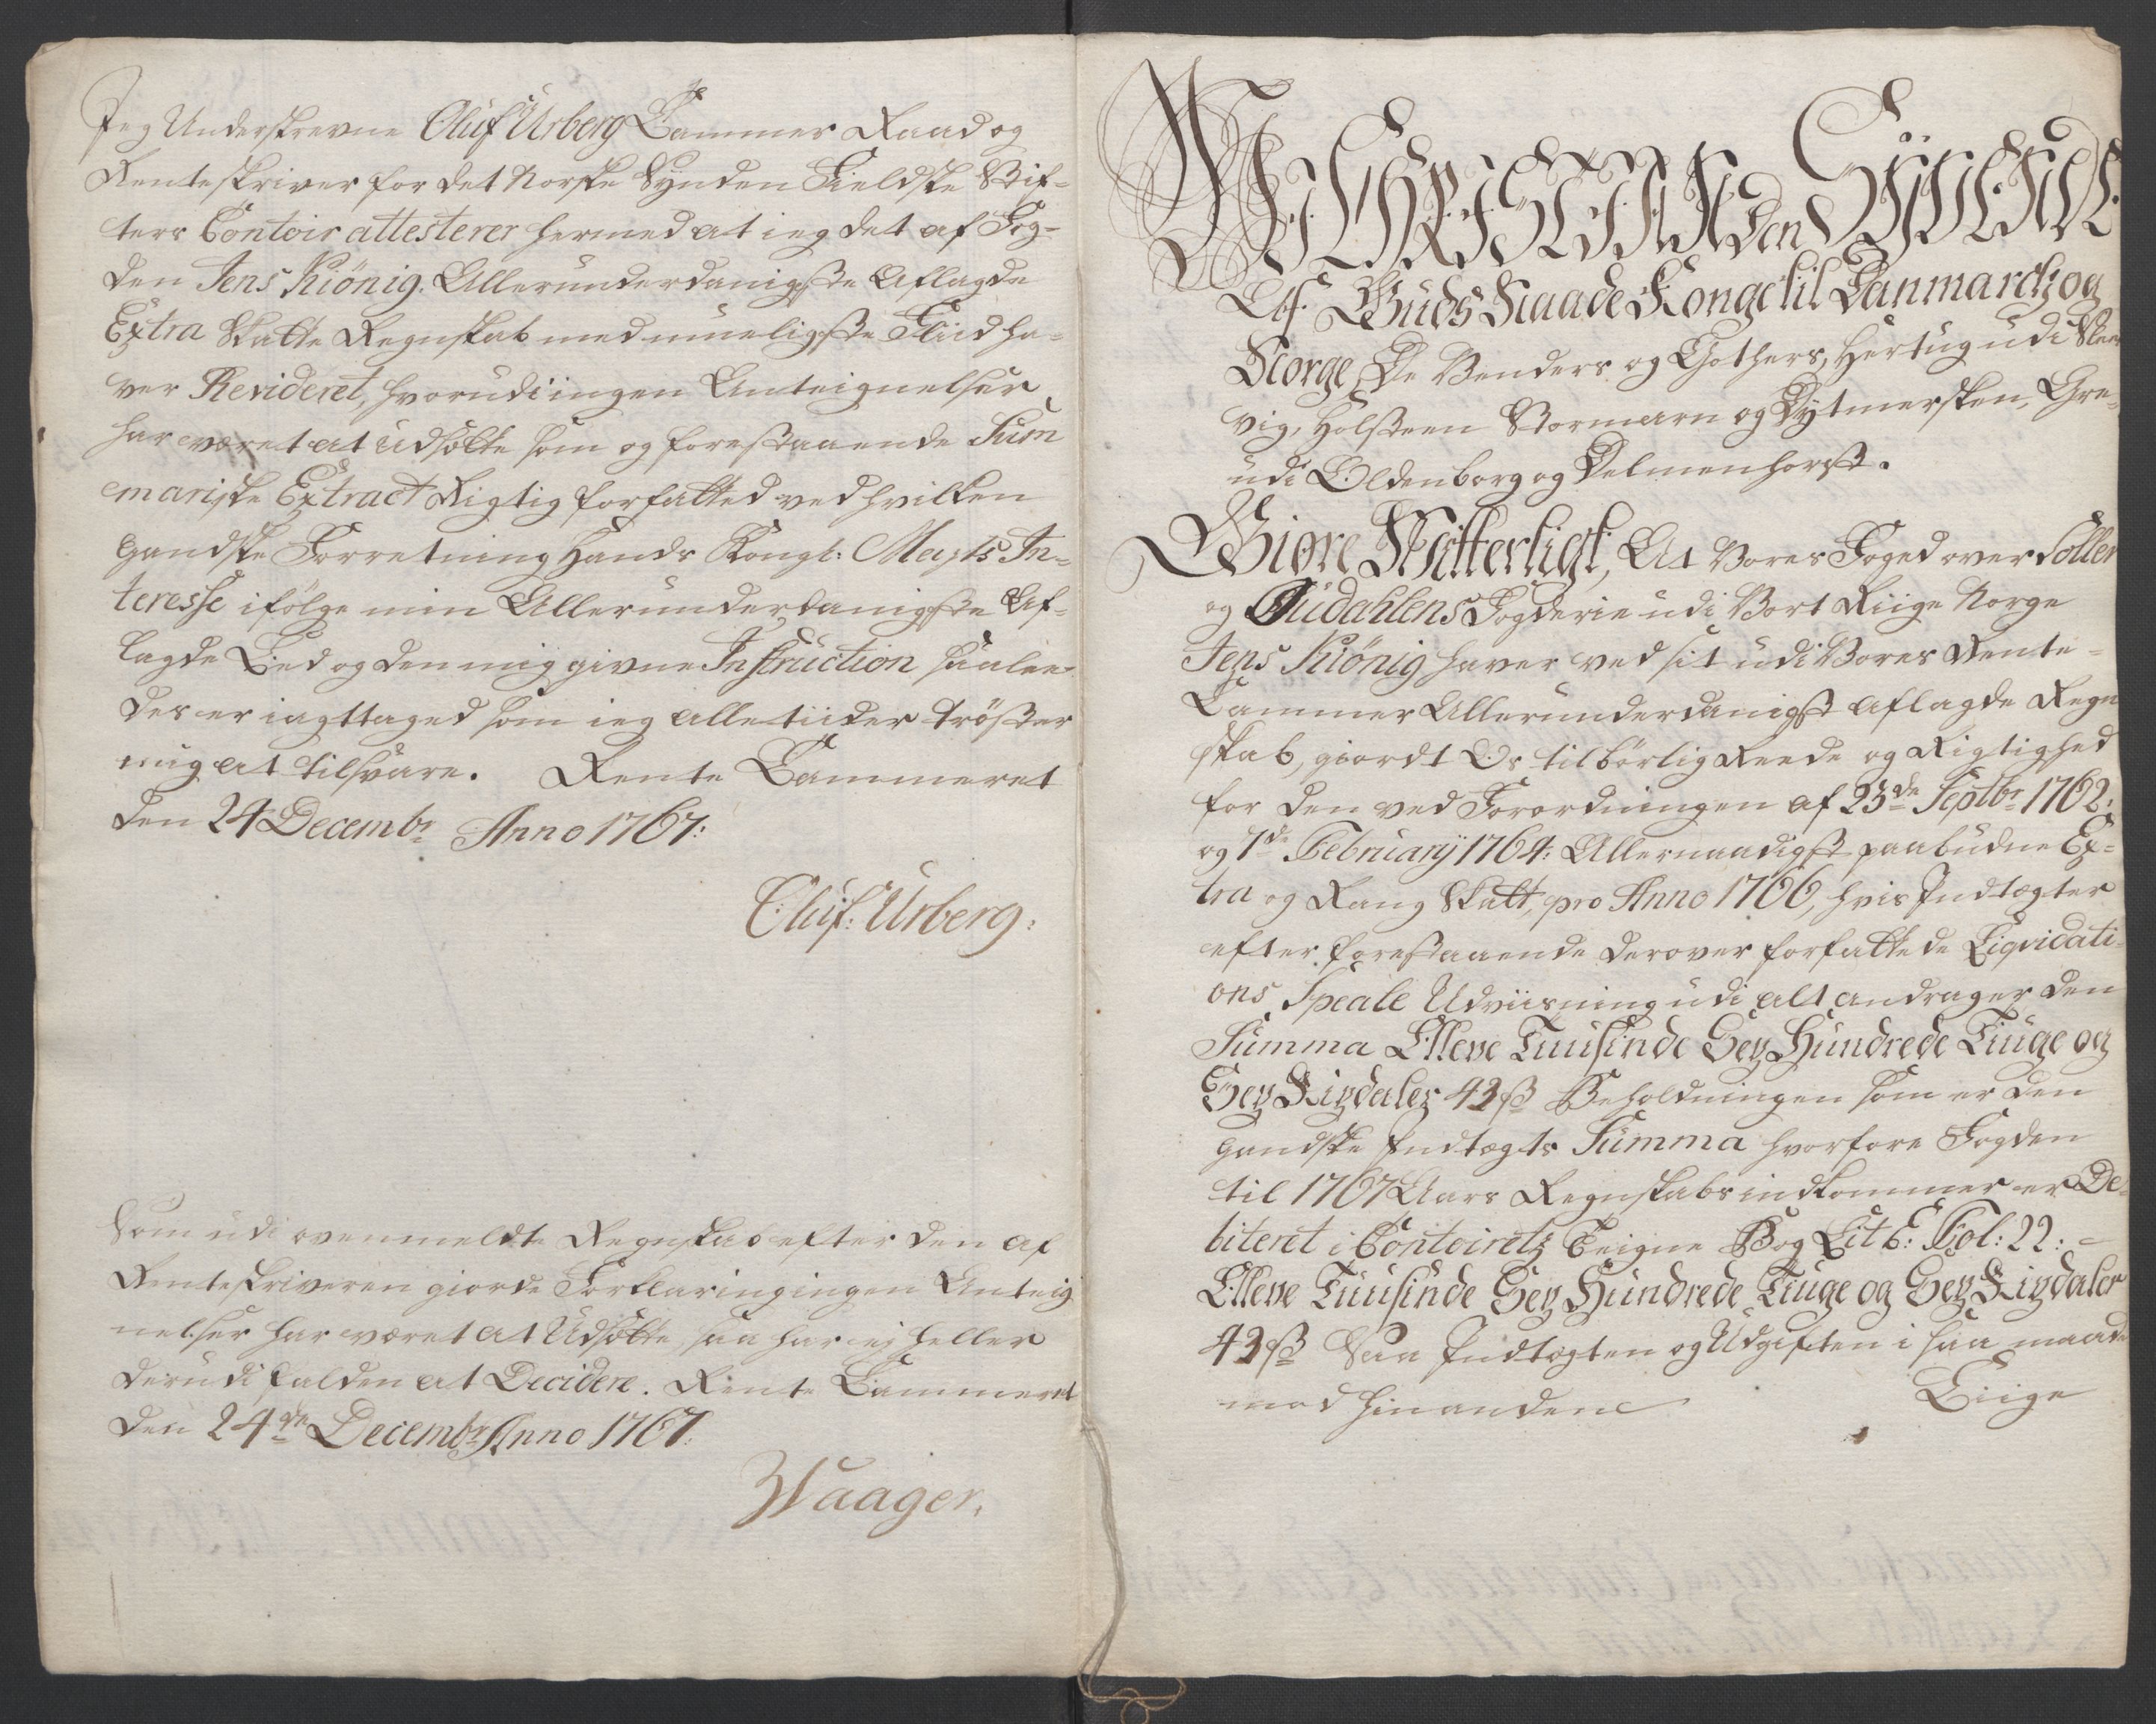 Jeg Underskrevne Oluf Urberg Cammer Raad og
Renteskriver for det Norske Synden Fieldske Stif-
ters Contoir attesterer hermed at ieg det af Fog-
den Jens Kiönig. Allerunderdanigste Aflagde
Extra Skatte Regnskab med mueligste Fliid ha-
ver Revideret, hvorudi ingen Anteignelser
har været at udsætte som og forestaaende Sum
mariske Extract Rigtig forfatted ved hvilken
gandske Forretning Hands Kongl: Mayts In-
teresse ifölge min Allerunderdanigste Af-
lagde Eed og den mig givne Instruction saalee-
des er iagttaged som ieg alle tiider tröster
mig at tilsvare. Rente Cammeret
den 24 Decembr Anno 1767:
Oluf: Urberg:
Som udi ovenmeldte Regnskab efter den af
Renteskriveren giorde Forklaring ingen Anteig
nelser har været at Udsætte, saa har ej heller
derudi falden at Decidere. Rente Cammeret
den 24de Decembr Anno 1767:
Waager.
Wi CHRISTIAN den Syvende
Af Guds Naade Konge til Danmarck og
Norge, De Venders og Gothers, Hertug udi Sles
vig, Holsteen Stormarn og Dytmersken, Gre-
udi Oldenborg og Delmenhorst.
Giöre Witterligt, At Vores Foged over Soller
og Oudahlens Fogderie udi Vort Riige Norge
Jens Kiönig haver ved sit udi Vores Rente-
Cammer Allerunderdanigst aflagde Regn
skab, giordt Os tilbörlig Reede og Rigtighed
for den ved Forordningen af 23de Septbr 1762:
og 1de February 1764: Allernaadigst paabudne Ex-
tra og Rang Skatt, pro Anno 1766, hvis Indtægter
efter forestaaende derover forfattede Liqvidati-
ons Speale Udviisning udi alt andrager den
Summa Elleve Tuusinde Sex Hundrede Tiuge og
Sex Rixdaler 43 ß Beholdningen som er den
gandske Indtægts Summa hvorfore Fogden
til 1767 Aars Regnskabs indkommer er De-
biteret i Contoirets Teigne Bog Lit E: Fol: 22: -
Elleve Tuusinde Sex Hundrede Tiuge og Sex Rixdaler
43 ß Saa Indtægten og Udgiften i saa maade
mod hinanden Liige